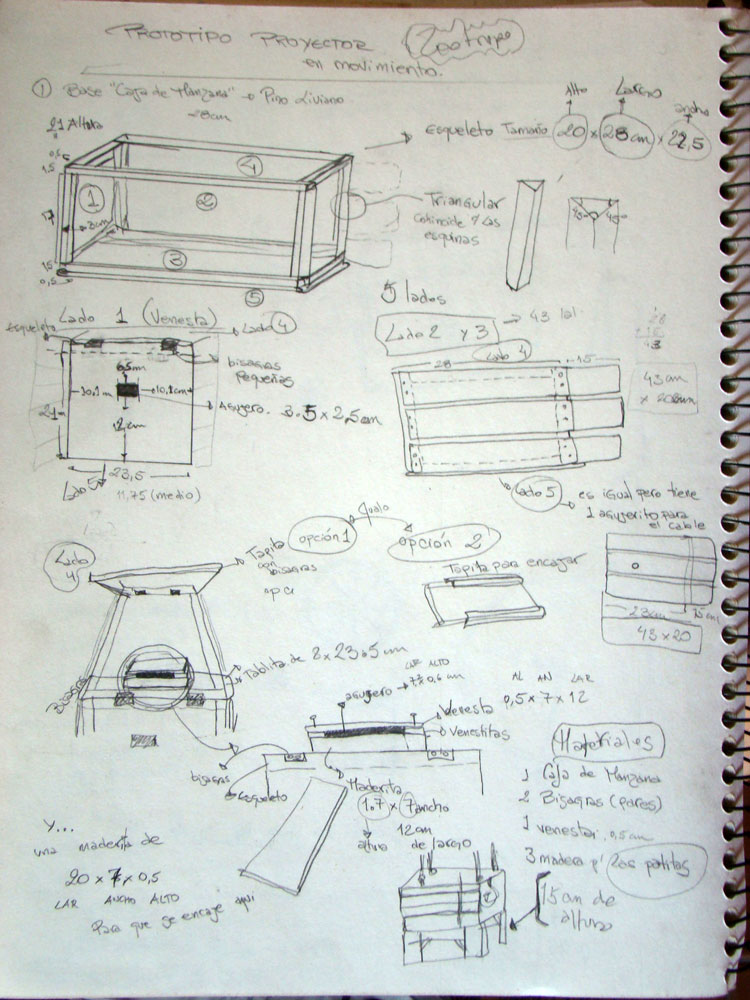 PROTOTIPO PROYECTOR Zootrope
en movimiento.
① Base "Caja de Manzana" → Pino Liviano
28cm
21 Altura
0,5
1,5
17
3cm
1.5
0,5
1
2
3
4
5
Alto Largo ancho
Esqueleto Tamaño 20 x 28cm x 22,5
Triangular
Coincide y las
esquinas
45° 45°
5 lados
Lado 1 (Venesta)
Esqueleto
Lado 4
bisagras
pequeñas
6.5cm
10,1 m
10,1cm
Agujero. 3.5 x 2,5cm
21
12cm
23,5
11,75 (medio)
Lado 5
Lado 2 y 3 → 43
Lado 4
28
15
43
43cm
x 20cm
Lado 5
es igual pero tiene
1 agujerito para
el cable
28cm
15cm
43 x 20
Lado
4
Tapita
con
bisagras
opción 1
opción 2
Tapita para encajar
Tablita de 8 x 23.5 cm
Bisagras
LAR ALTO
agujero → 7 x 0,6 cm
Venesta
Venestitas
AL AN LAR
0,5 x 7 x 12
bisagras
Esqueleto
Maderita
1.7 x 7 ancho
12cm
altura de largo
Materiales
1 Caja de Manzana
2 Bisagras (pares)
1 venesta. 0,5cm
3 madera p' las patitas
15cm de
altura
Y...
una maderita de
20 x 7 x 0,5
LAR ANCHO ALTO
Para que se encaje aquí